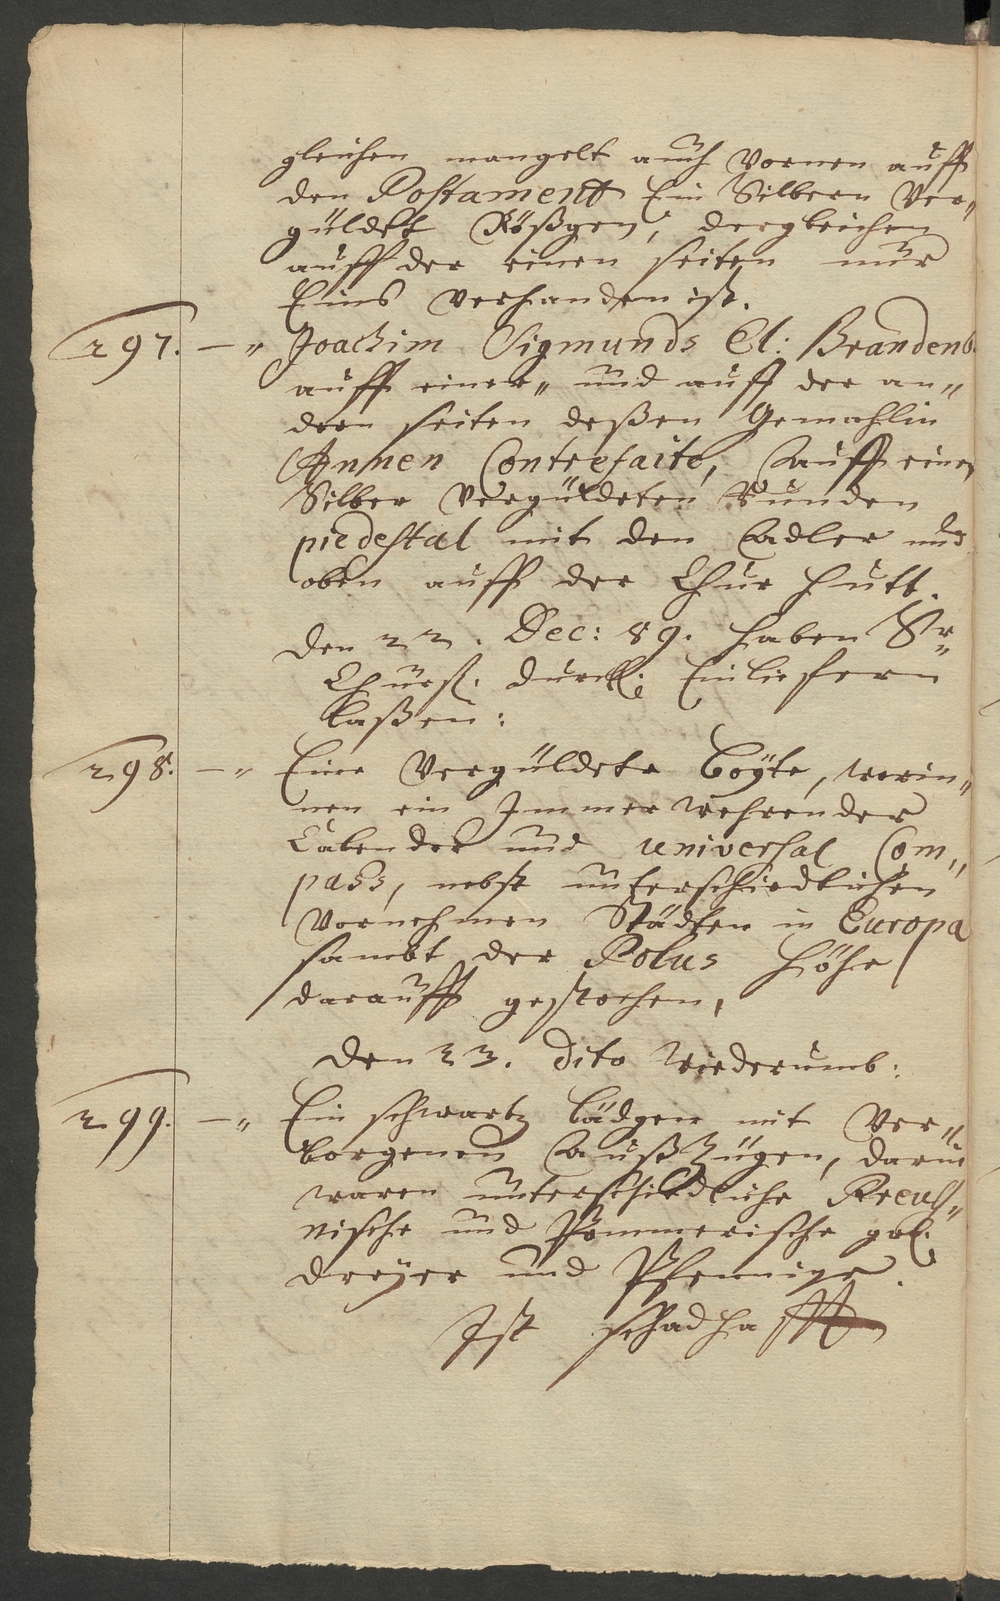 gleichen mangelt auch Vornen auff
den Postament Ein Silbern Ver„
güldt Rößgen, dergleichen
auff der einen seiten nur
Eins verhanden ist.
297. —„ Joachim Sigmunds El: Brandenb.
auff einer„ und auff der an„
dern seiten deßen Gemahlin
Annen Contrefaite, Auff einen
Silber Vergüldeten Runden
piedestal mit den Adler und
oben auff der Chur Hutt.
den 22. Dec: 89. haben Sr„
Churf. Durchl: Einliefern
laßen:
298. —„ Eine Vergüldete Boÿte, worin„
nen ein Immer wehrender
Calender und universal Com„
pass, nebst unterschiedlichen
Vornehmen Städten in Europa
sambt der Polus Höhe
darauff gestochen,
den 23. dito Wiederumb:
299. —„ Ein schwartz Lädgen mit Ver„
borgenen Außzügen, darin
waren unterschiedliche Reuß„
nische und Pommerische
dreÿer und Pfennige.
Ist schadhafft